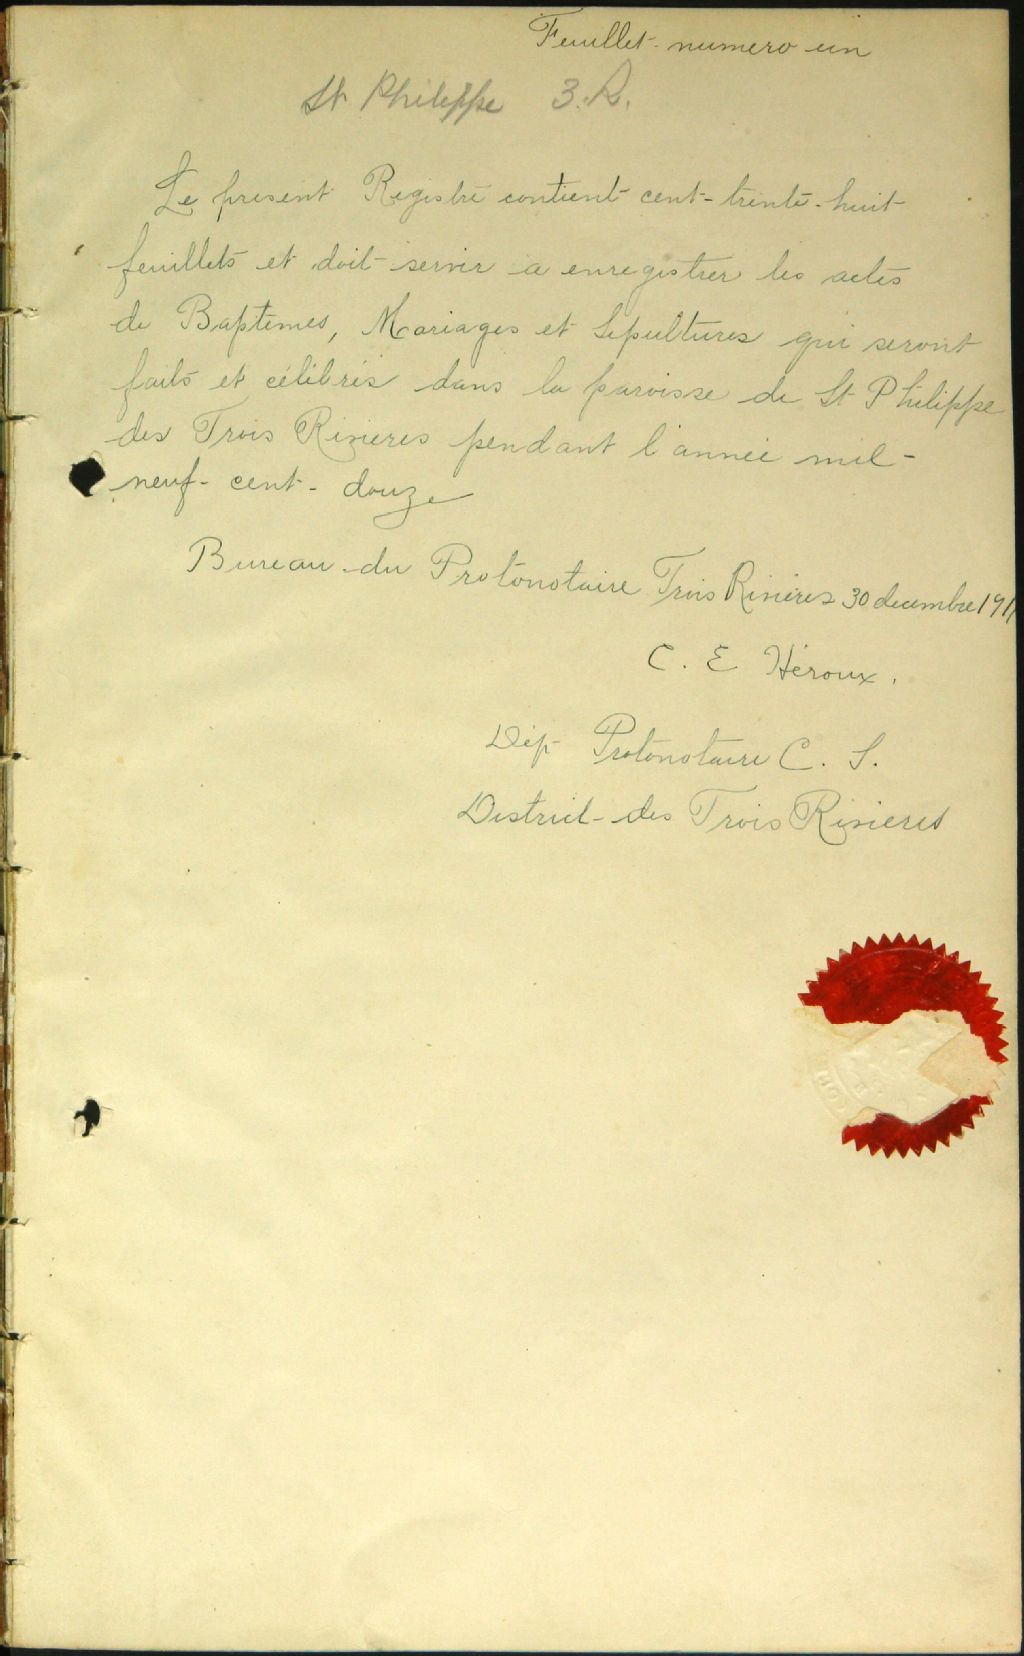 Feuillet numero un
St Philippe 3.R.
Le present Registre contient cent-trente-huit
feuillets et doit servir a enregistrer les actes
de Baptemes, Mariages et Sepultures qui seront
faits et célébrés dans la paroisse de St Philippe
des Trois Rivieres pendant l'année mil-
neuf-cent-douze
Bureau du Protonotaire Trois Rivieres 30 decembre 1911
C. E Héroux.
Dép Protonotaire C. S.
District des Trois Rivieres